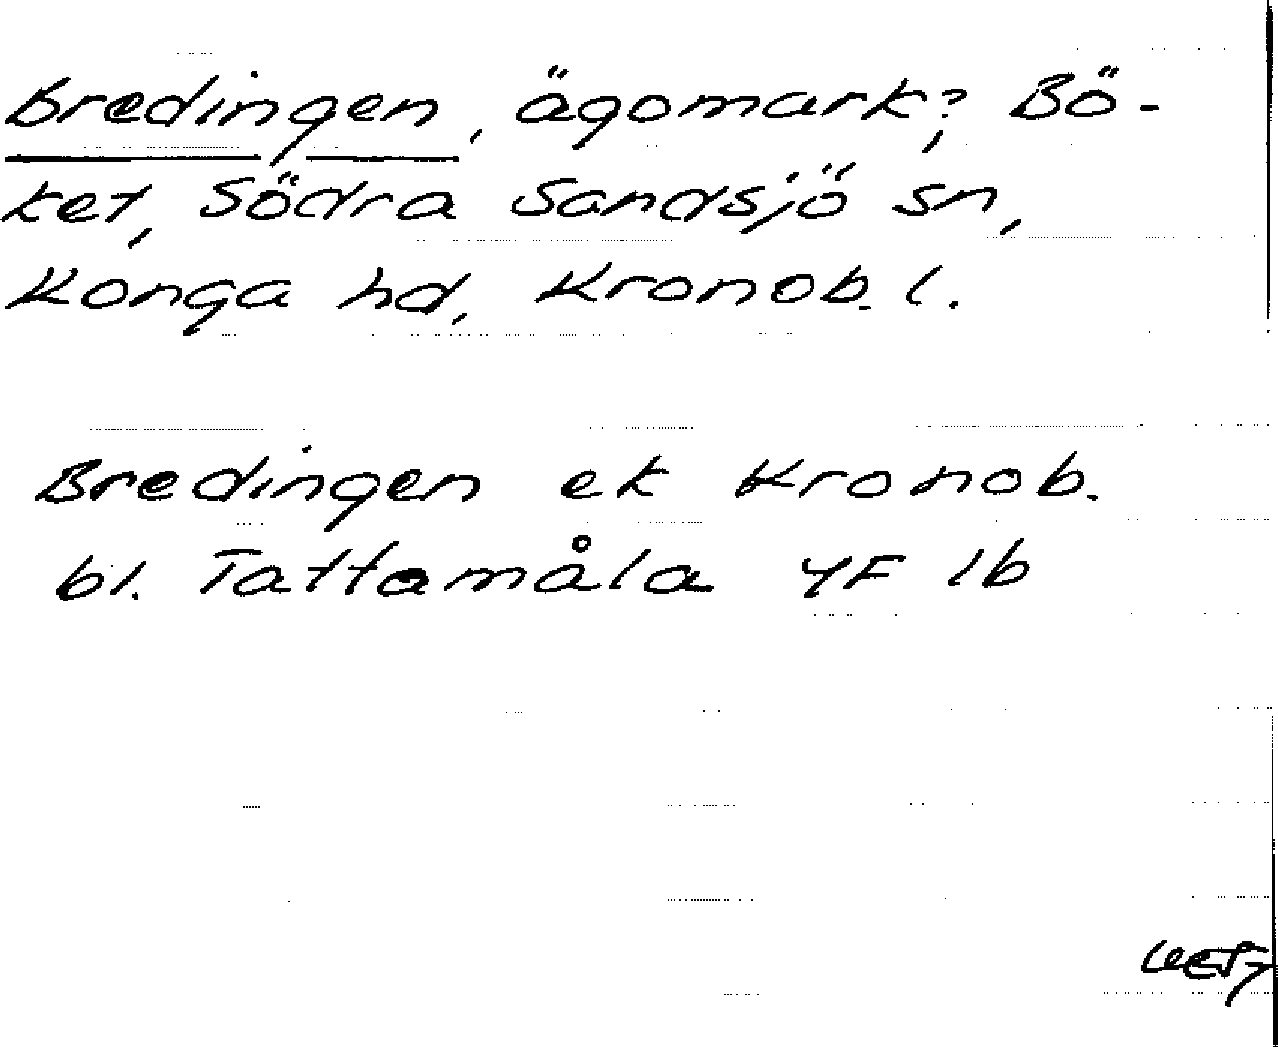 Bredingen, ägomark?, Bö-
ket, Södra Sandsjö sn,
Konga hd, Kronob. l.
Bredingen ek Kronob.
bl. Tattamåla YF 1b